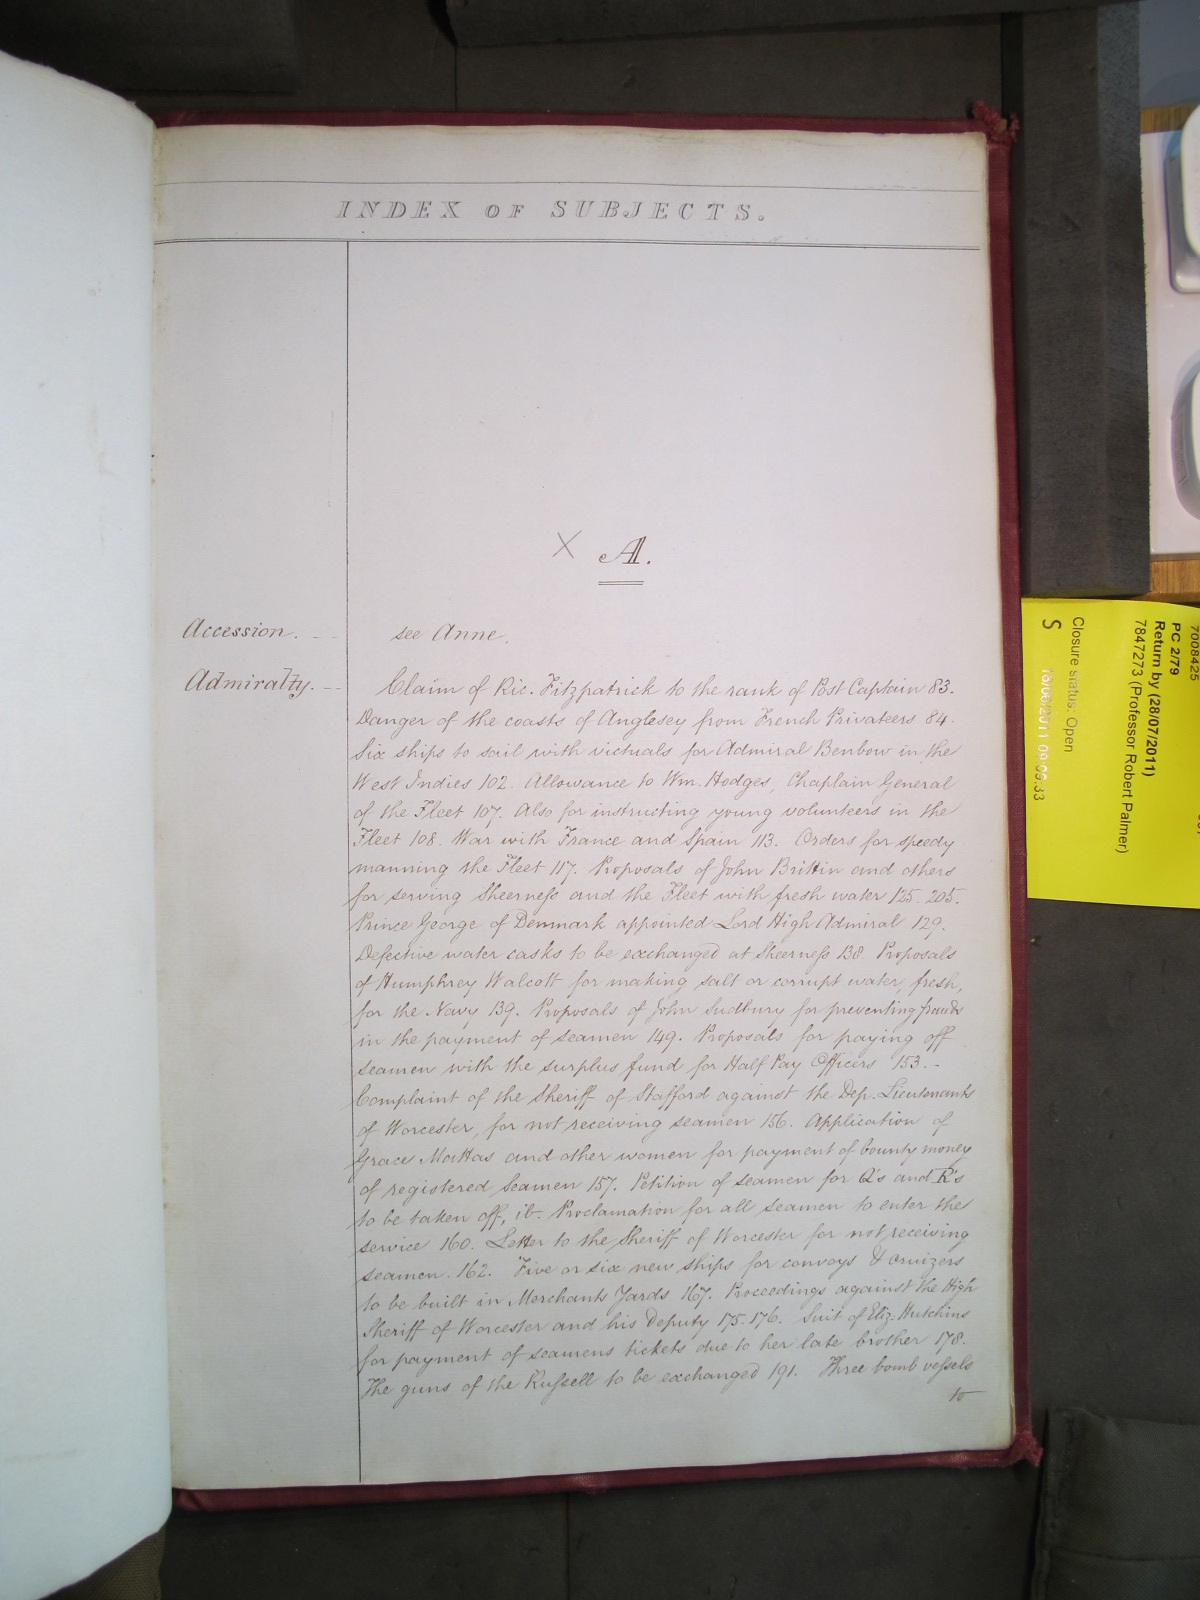 INDEX OF SUBJECTS.
X A.
Accession. - - see Anne.
Admiralty. - - Claim of Ric. Fitzpatrick to the rank of Post Captain 83.
Danger of the coasts of Anglesey from French Privateers 84.
Six ships to sail with victuals for Admiral Benbow in the
West Indies 102. Allowance to Wm. Hodges, Chaplain General
of the Fleet 107. Also for instructing young volunteers in the
Fleet 108. War with France and Spain 113. Orders for speedy
manning the Fleet 117. Proposals of John Brittin and others
for serving Sheerneſs and the Fleet with fresh water 125. 205.
Prince George of Denmark appointed Lord High Admiral 129.
Defective water casks to be exchanged at Sheerneſs 138. Proposals
of Humphrey Walcott for making salt or corrupt water, fresh,
for the Navy 139. Proposals of John Sudbury for preventing frauds
in the payment of seamen 149. Proposals for paying off
seamen with the surplus fund for Half Pay Officers 153. -
Complaint of the Sheriff of Stafford against the Dep. Lieutenants
of Worcester, for not receiving seamen 156. Application of
Grace Mattas and other women for payment of bounty money
of registered Seamen 157. Petition of seamen for Q's and R's
to be taken off, ib. Proclamation for all seamen to enter the
service 160. Letter to the Sheriff of Worcester for not receiving
seamen. 162. Five or six new ships for convoys & cruizers
to be built in Merchants Yards 167. Proceedings against the High
Sheriff of Worcester and his Deputy 175. 176. Suit of Eliz: Hutchins
for payment of seamens tickets due to her late brother 178.
The guns of the Ruſsell to be exchanged 191. Three bomb veſsels
to
7008425
PC 2/79
Return by (28/07/2011)
7847273 (Professor Robert Palmer)
Closure status: Open
S
09:09:33